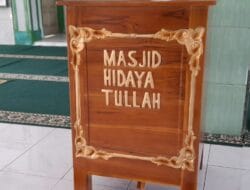 MASJID
HIDAYA
TULLAH